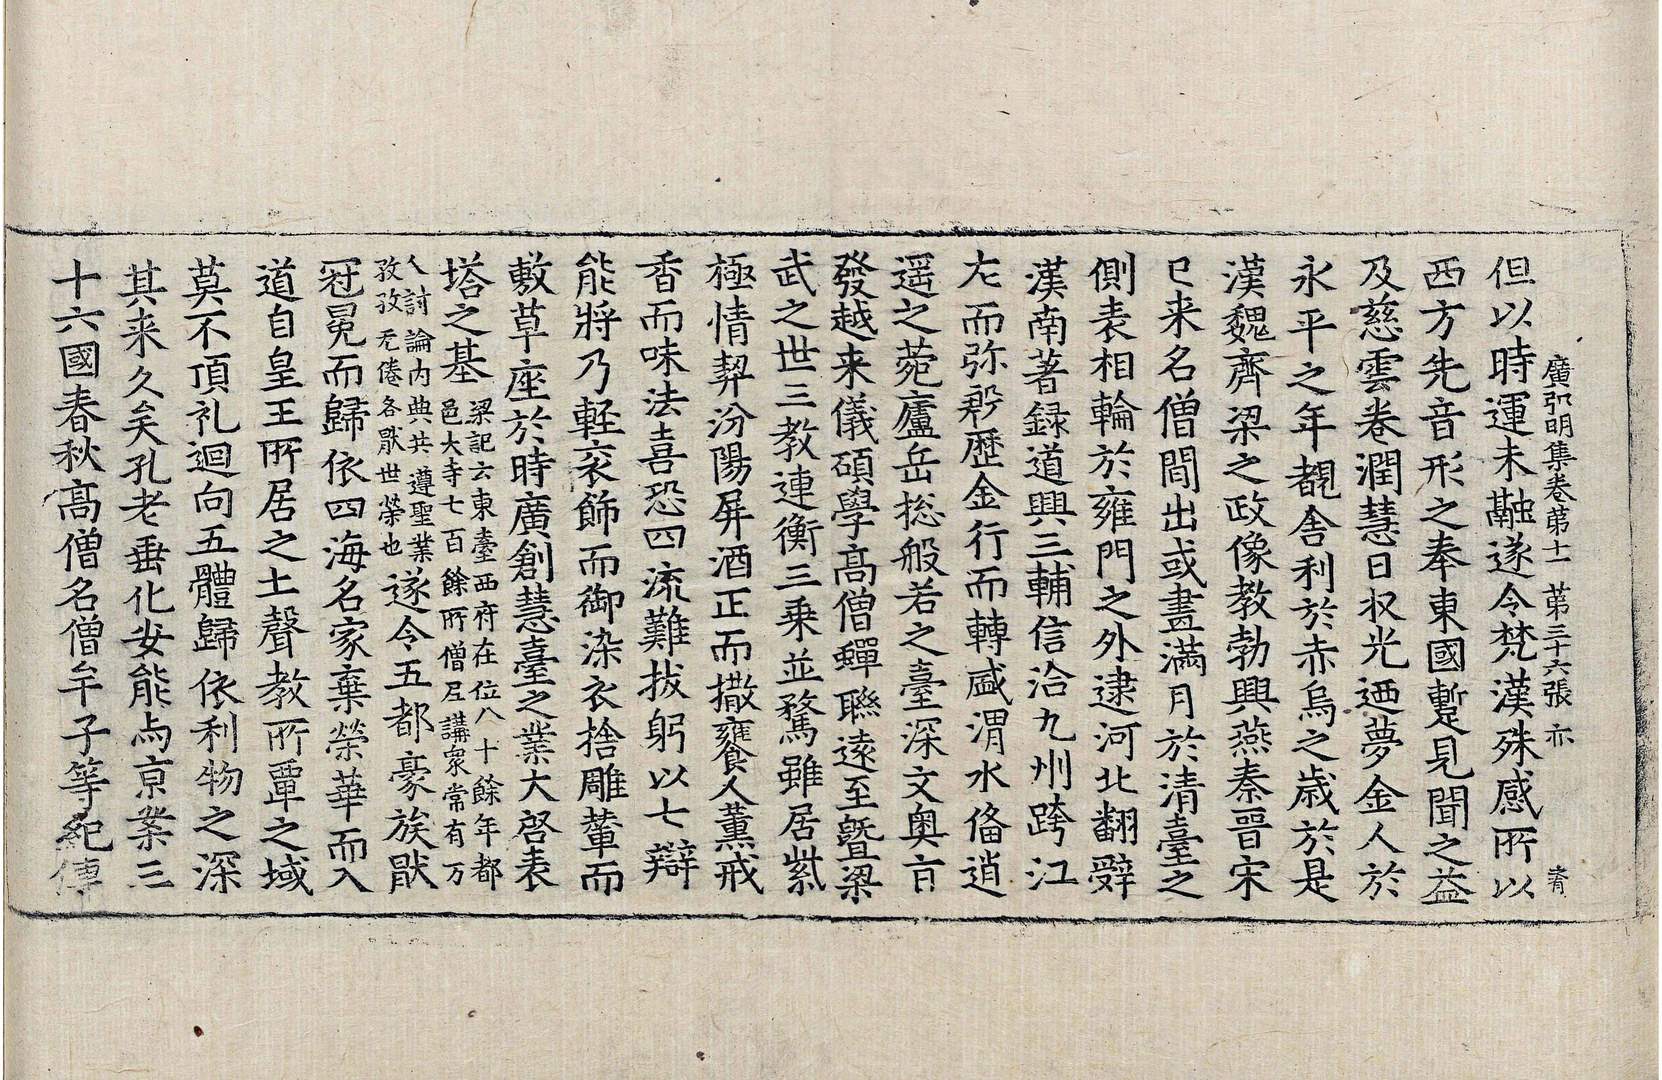 廣弘明集卷第十一 第三十六張 亦
青
但以時運未融遂令梵漢殊感所以
西方先音形之奉東國蹔見聞之益
及慈雲卷潤慧日収光迺夢金人於
永平之年覩舍利於赤烏之歲於是
漢魏齊梁之政像教勃興燕秦晋宋
已来名僧間出或畫滿月於清臺之
側表相輪於雍門之外逮河北翻辭
漢南著録道興三輔信洽九州跨江
左而弥殷歷金行而轉盛渭水俻逍
遥之菀廬岳揔般若之臺深文奥旨
發越来儀碩學髙僧蟬聯遠至曁梁
武之世三教連衡三乗並騖雖居紫
極情契汾陽屏酒正而撤饔人薫戒
香而味法喜恐四流難拔躬以七辯
能將乃軽衮飾而御染衣捨雕輦而
敷草座於時廣創慧臺之業大啓表
塔之基梁記云東臺西府在位八十餘年都
邑大寺七百餘所僧尼講衆常有万
人討論内典共遵聖業
孜孜无倦各厭世榮也遂令五都豪族厭
冠冕而歸依四海名家棄榮華而入
道自皇王所居之土聲教所覃之域
莫不頂礼迴向五體歸依利物之深
其来久矣孔老垂化安能与京案三
十六國春秋髙僧名僧牟子等紀傳